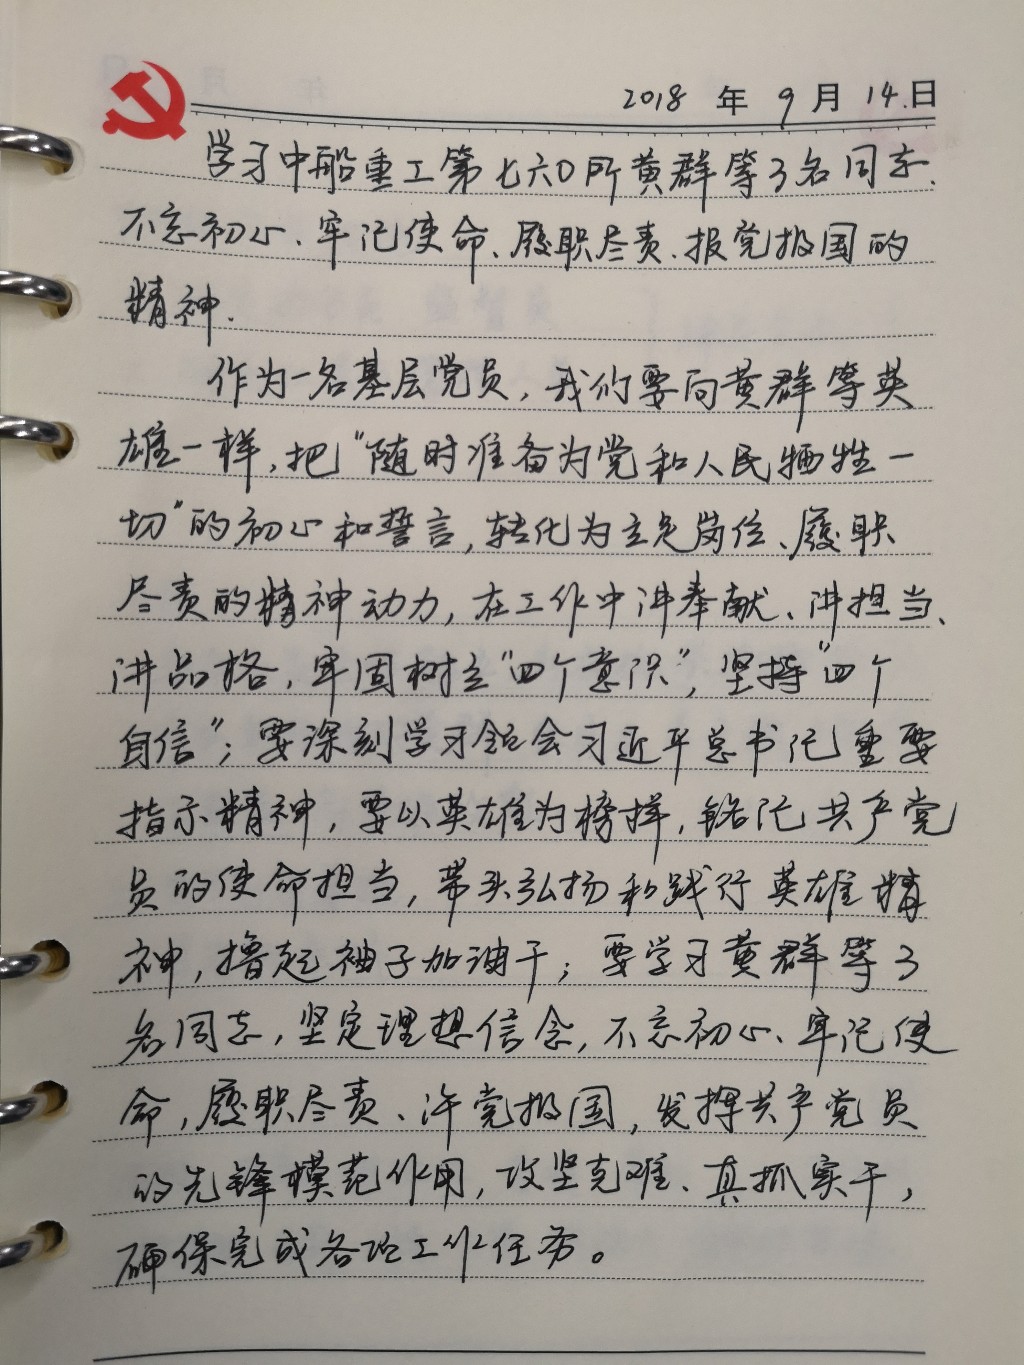 2018 年 9 月 14.日
学习中船重工第七六〇所黄群等3名同志、
不忘初心、牢记使命、履职尽责、报党报国的
精神.
作为一名基层党员,我们要向黄群等英
雄一样,把“随时准备为党和人民牺牲一
切”的初心和誓言,转化为立足岗位、履职
尽责的精神动力,在工作中讲奉献、讲担当、
讲品格,牢固树立“四个意识”,坚持“四个
自信”;要深刻学习领会习近平总书记重要
指示精神,要以英雄为榜样,铭记共产党
员的使命担当,带头弘扬和践行英雄精
神,撸起袖子加油干;要学习黄群等3
名同志,坚定理想信念,不忘初心、牢记使
命,履职尽责、许党报国,发挥共产党员
的先锋模范作用,攻坚克难、真抓实干,
确保完成各项工作任务。